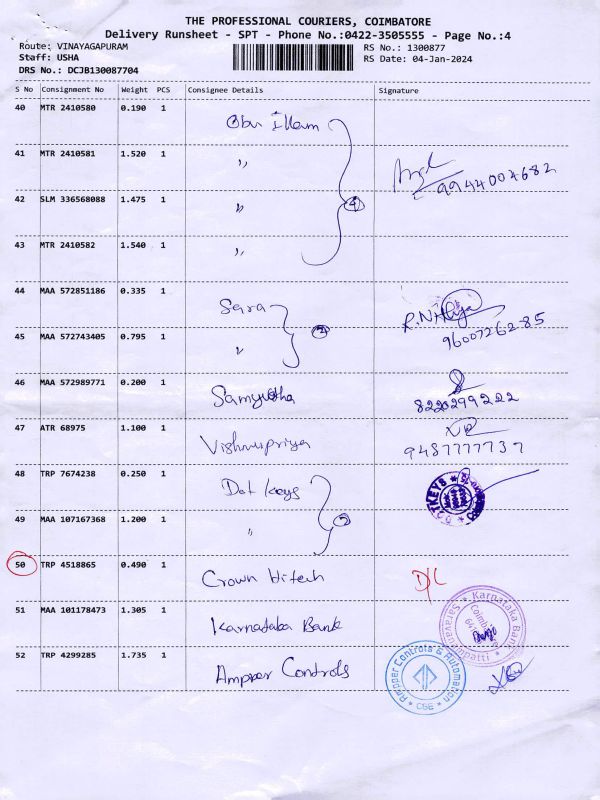 THE PROFESSIONAL COURIERS, COIMBATORE
Delivery Runsheet - SPT - Phone No.:0422-3505555 - Page No.:4
Route: VINAYAGAPURAM RS No.: 1300877
Staff: USHA RS Date: 04-Jan-2024
DRS No.: DCJB130087704
S No Consignment No Weight PCS Consignee Details Signature
40 MTR 2410580 0.190 1 Illam
41 MTR 2410581 1.520 1 ,, 9944004682
42 SLM 336568088 1.475 1 ,, 4
43 MTR 2410582 1.540 1 ,,
44 MAA 572851186 0.335 1 Sara
45 MAA 572743405 0.795 1 ,, 2 9600726285
46 MAA 572989771 0.200 1 Samyuktha 8220299222
47 ATR 68975 1.100 1 Vishnupriya 9487777737
48 TRP 7674238 0.250 1 Dot Keys DOTKEYS
49 MAA 107167368 1.200 1 ,, 2
50 TRP 4518865 0.490 1 Crown Hitech D/L
51 MAA 101178473 1.305 1 Karnataka Bank Karnataka Bank
Saravanampatti
52 TRP 4299285 1.735 1 Ampper Controls Ampper Controls & Automation
CBE